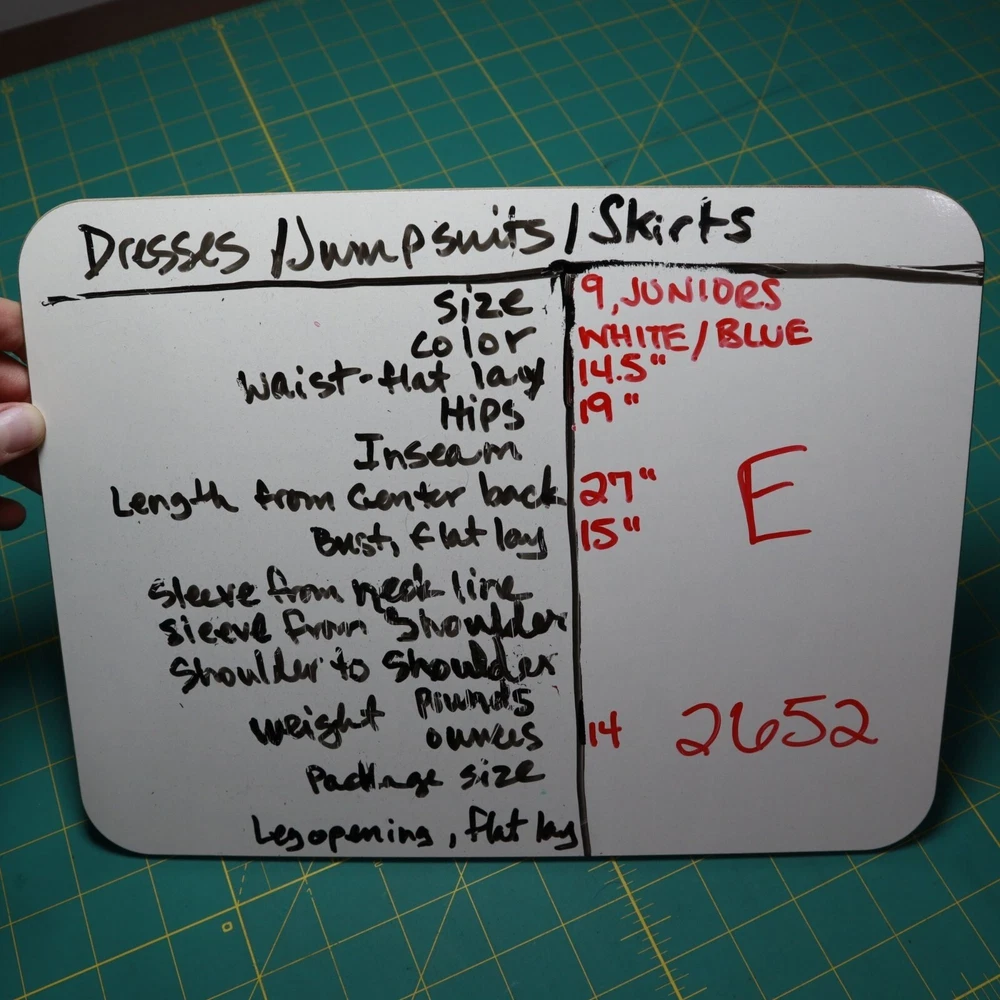 Dresses /Jumpsuits / Skirts
size 9, JUNIORS
color WHITE/BLUE
waist-flat lay 14.5"
Hips 19"
Inseam
Length from center back 27"
E
Bust, flat lay 15"
sleeve from neck line
sleeve from Shoulder
Shoulder to Shoulder
weight pounds
ounces 14
2652
Package size
Leg opening, flat lay